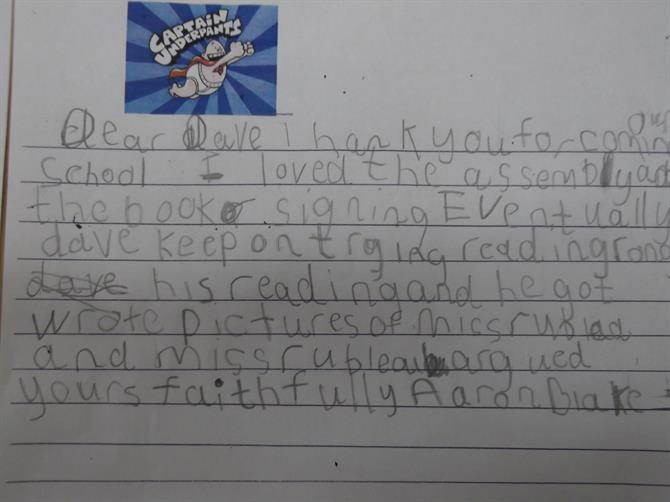 CAPTAIN
UNDERPANTS
our
Dear Dave Thank you for comin
School I loved the assembly and
the book signing EVentually
dave keep on trying reading and
dave his reading and he got
wrote pictures of
and miss argued
yours faithfully Aaron Blake